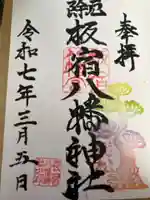 奉拝
厄除 板宿八幡神社
令和七年三月五日